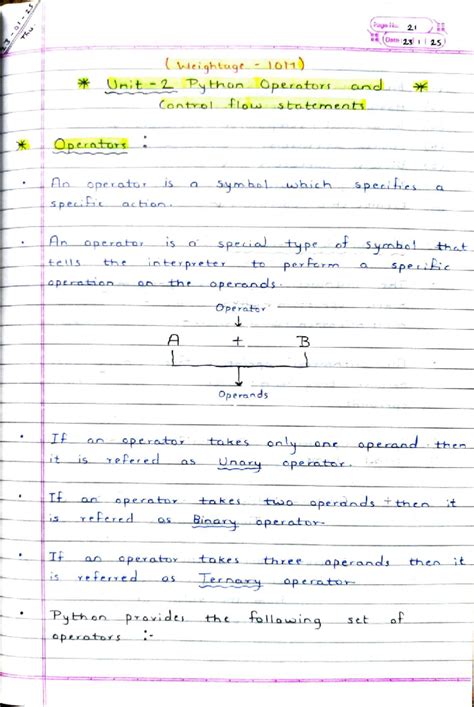 23-01-25
THU
Page No. 21
Date 23 1 25
(Weightage - 10M)
* Unit - 2 Python Operators and *
Control flow statements
* Operators :
• An operator is a symbol which specifies a
specific action.
• An operator is a special type of symbol that
tells the interpreter to perform a specific
operation on the operands.
Operator
A + B
Operands
• If an operator takes only one operand then
it is refered as Unary operator.
• If an operator takes two operands then it
is refered as Binary operator.
• If an operator takes three operands then it
is referred as Ternary operator
• Python provides the following set of
operators :-